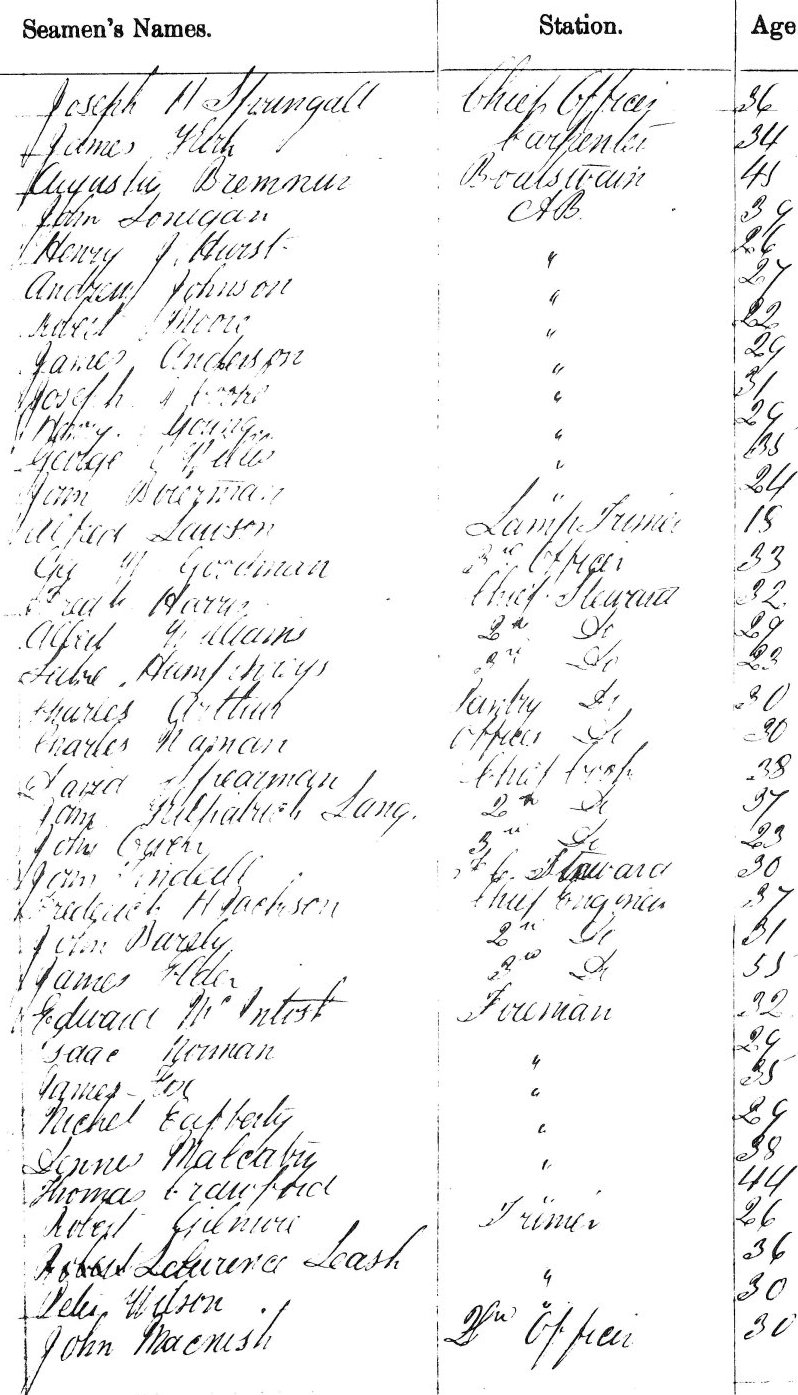 Seamen's Names. Station. Age
Joseph H Springall Chief Officer 36
James Kirk Carpenter 34
Augustus Bremner Boatswain 45
John Lonegan AB 39
Henry J. Hurst " 26
Andrew Johnson " 27
Robert Moore " 22
James Anderson " 29
Joseph " 31
Harry Young " 29
George " 35
John Boverman " 24
Alfred Lawson Lamp Trimer 18
Geo Goodman 3rd Officer 33
Fredk Harris Chief Steward 32
Albert Williams 2nd Do 29
Humphreys 3rd Do 23
Charles Arthur Pantry Do 30
Charles Naman Officers Do 30
David Spearman Chief Cook 38
Kilpatrick Lang. 2nd Do 37
John Owen 3rd Do 23
John Tindell Steward 30
Frederick H Jackson Chief Engineer 37
John Barsby 2nd Do 31
James Elder 3rd Do 55
Edward McIntosh Fireman 32
Isaac Norman 29
James Fox " 35
Michel Lafferty " 29
Dennis " 38
Thomas Crawford " 44
Robert Gilmore Trimer 26
Robert Laurence Leash 36
Peter Wilson " 30
John Macnish 2nd Officer 30